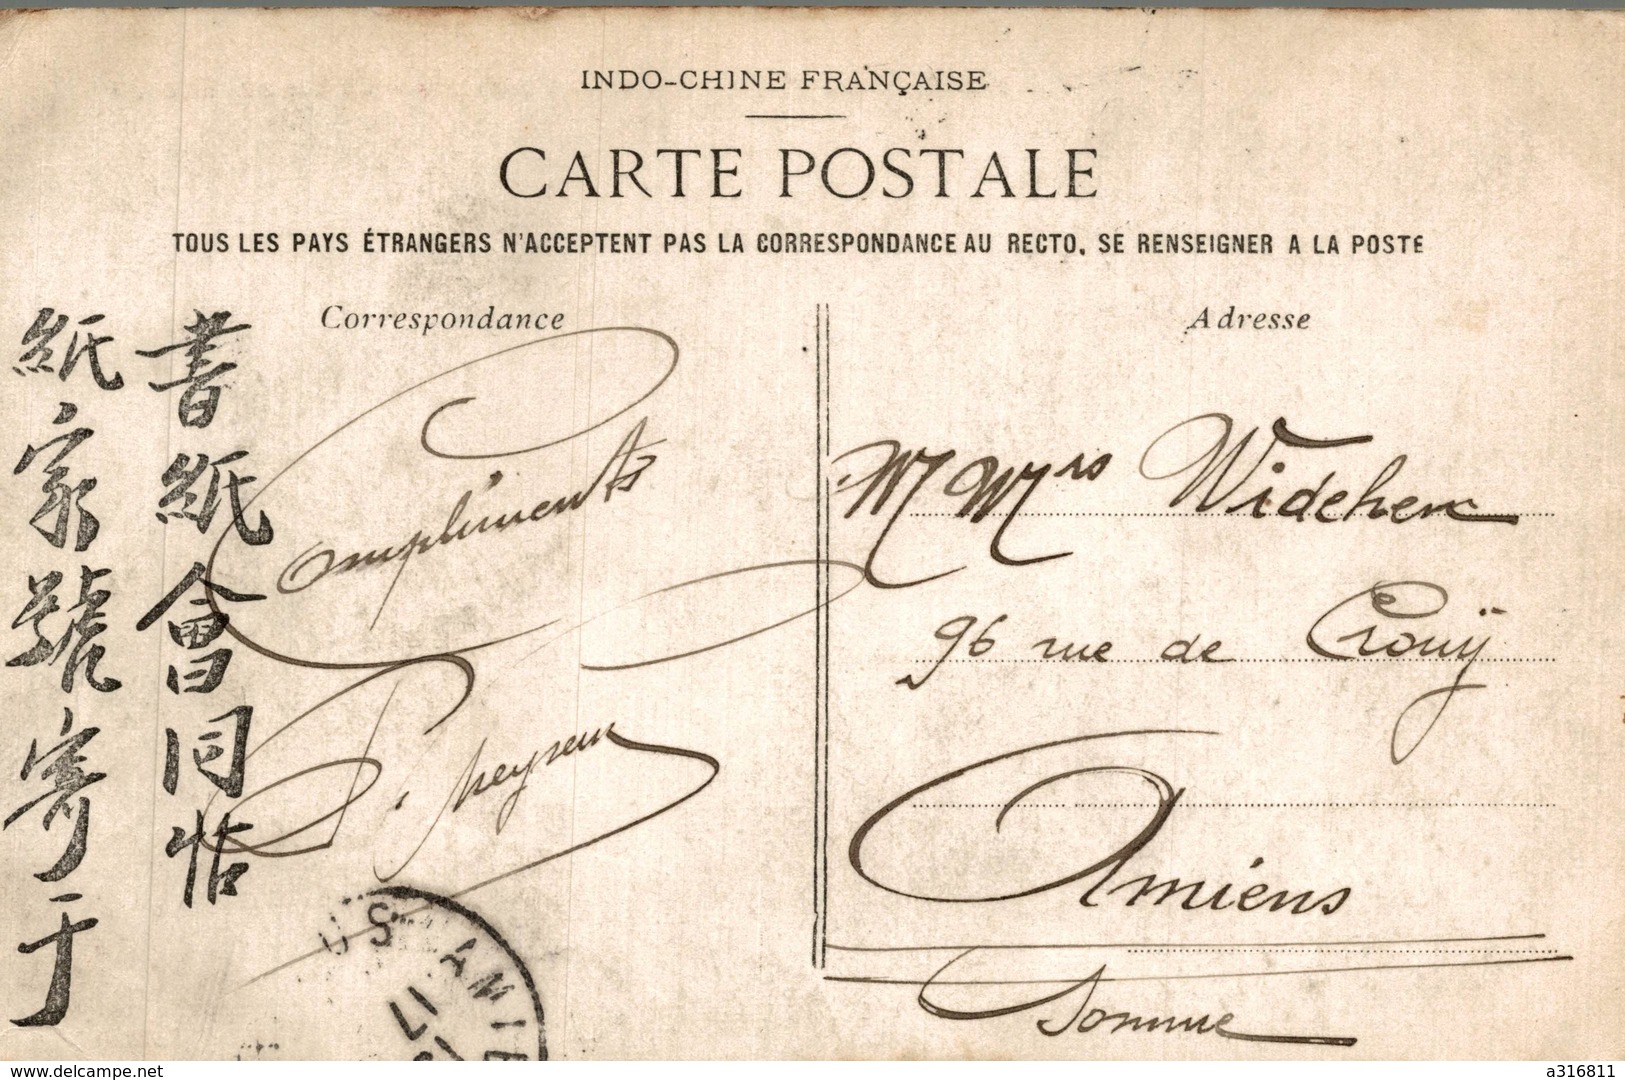 INDO-CHINE FRANÇAISE
CARTE POSTALE
TOUS LES PAYS ÉTRANGERS N'ACCEPTENT PAS LA CORRESPONDANCE AU RECTO, SE RENSEIGNER A LA POSTE
Correspondance
Compliments
書紙會同帖
紙家號寄于
Adresse
M Mrs
96 rue de Crouÿ
Amiens
Somme
US AMIE
17
delcampe.net
a316811